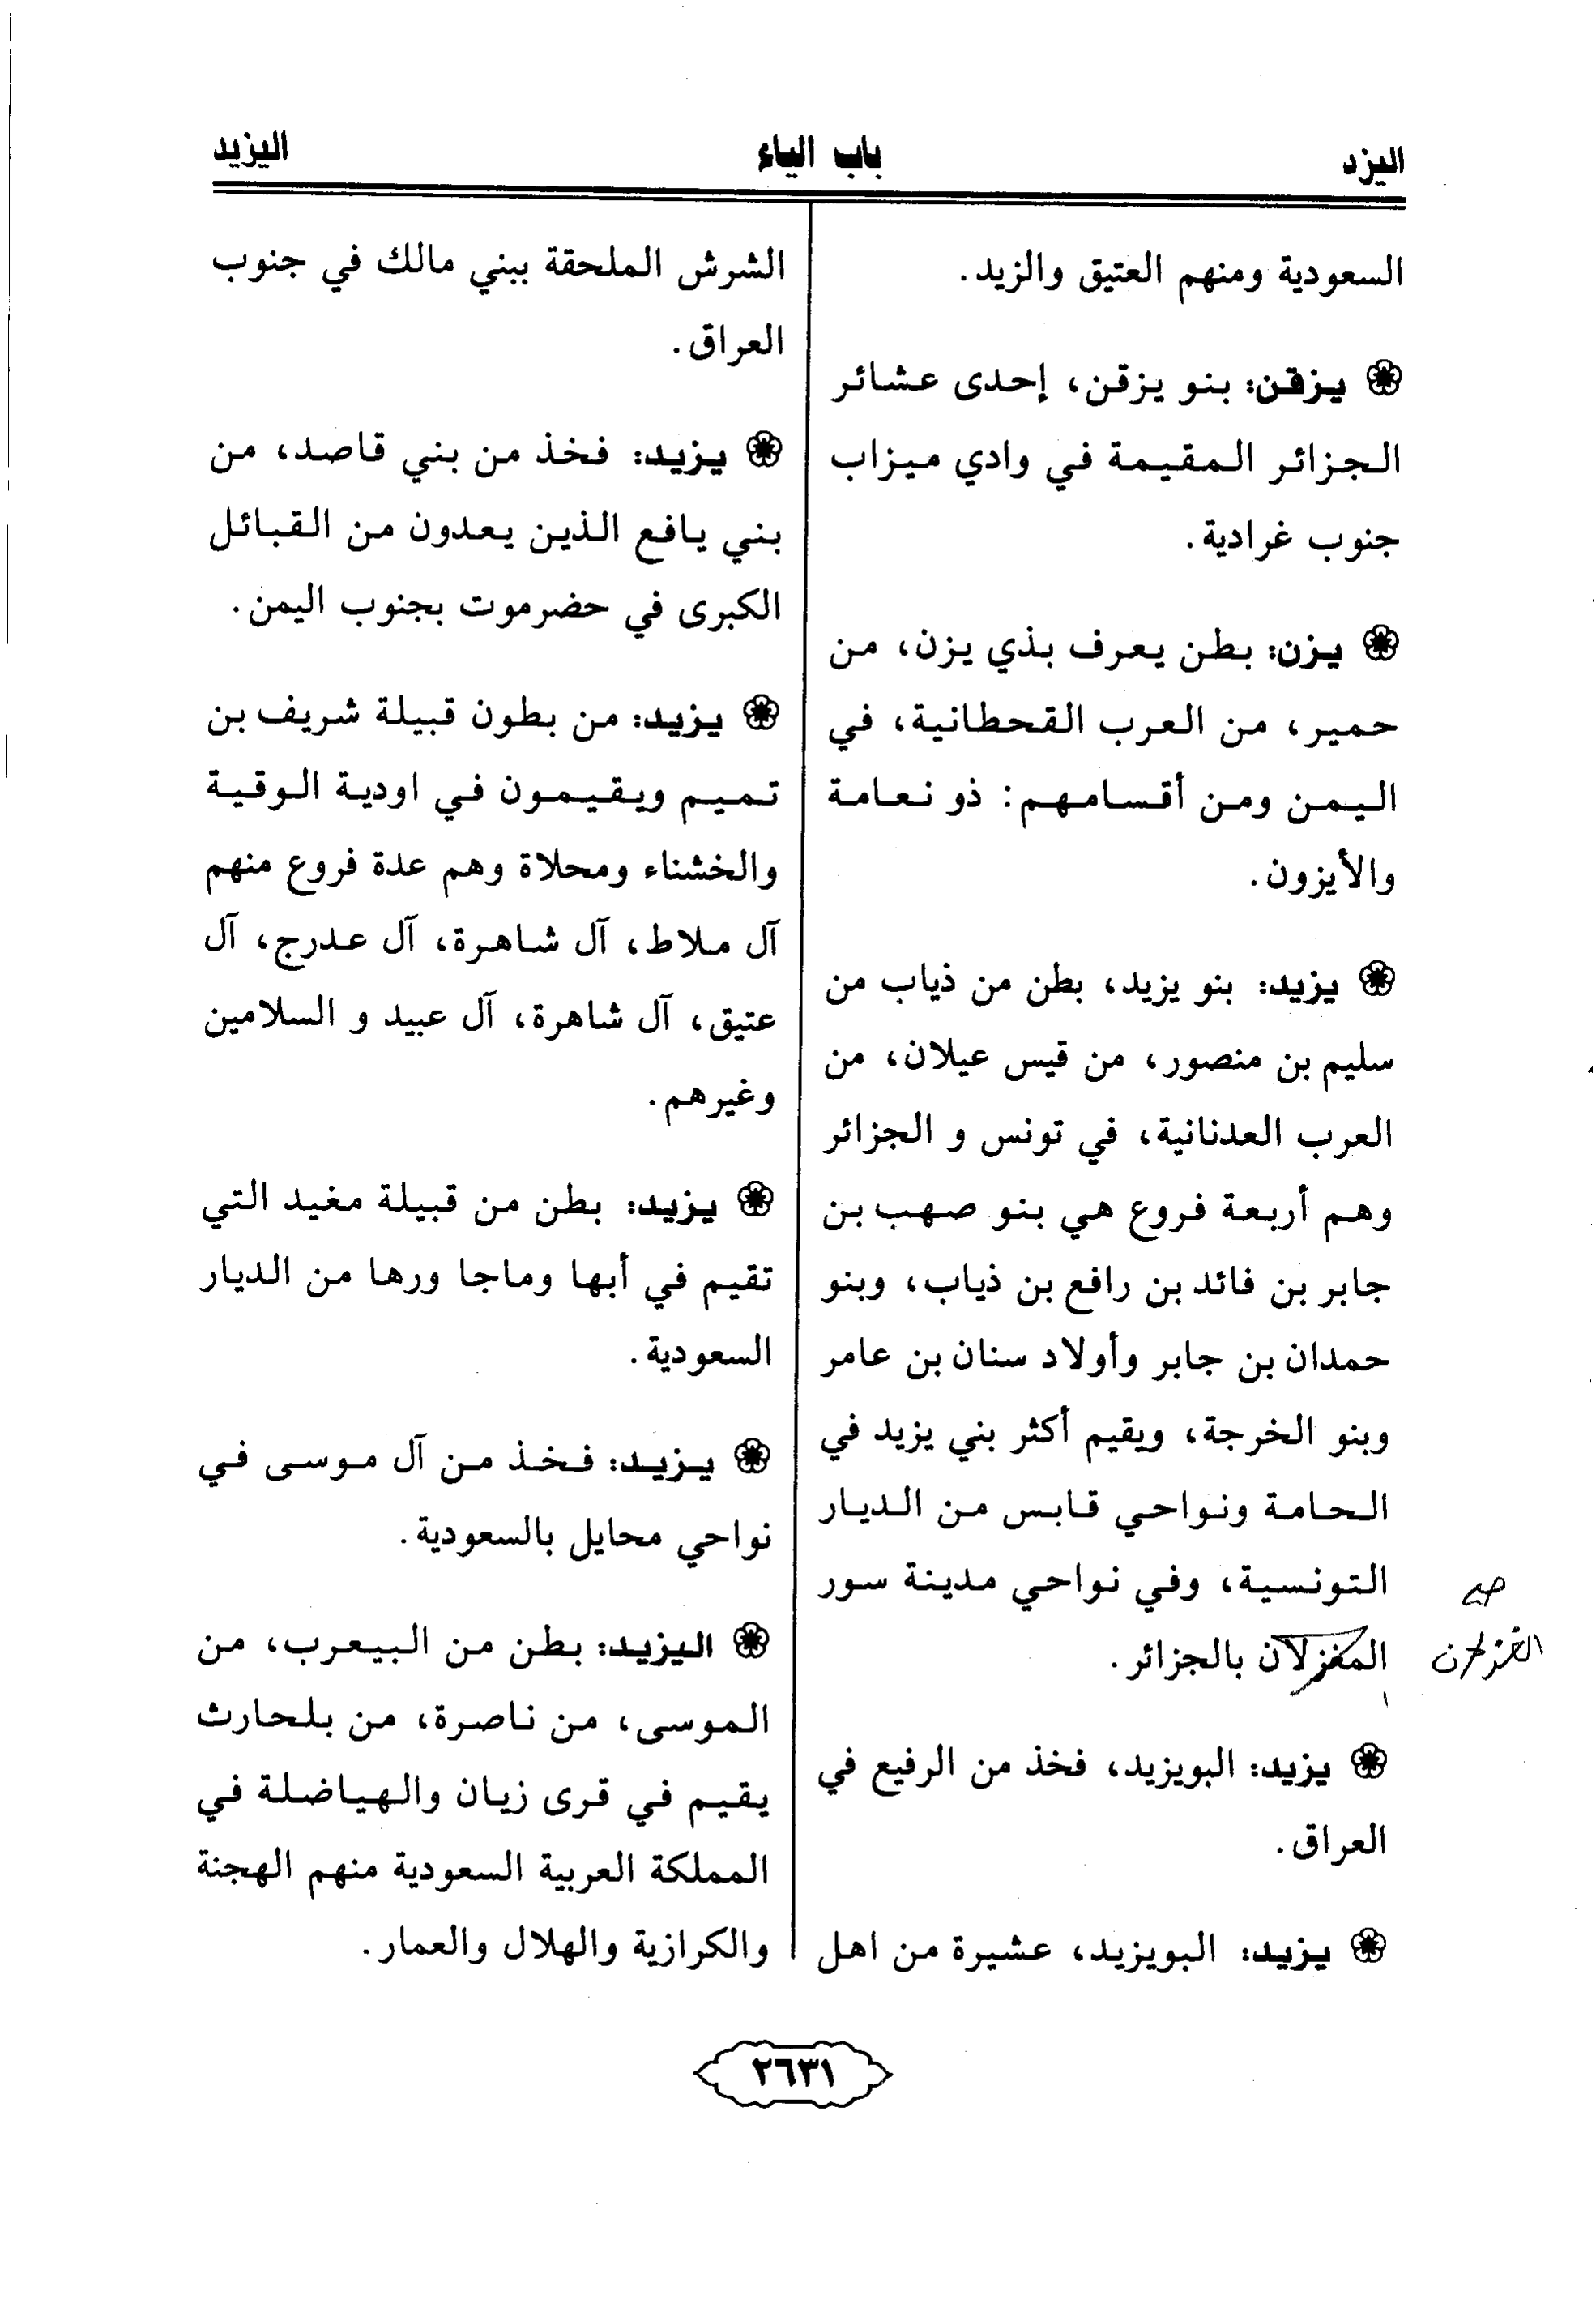 اليزد
باب الياء
اليزيد
السعودية ومنهم العتيق والزيد.
يزقن: بنو يزقن، إحدى عشائر
الجزائر المقيمة في وادي ميزاب
جنوب غرادية.
يزن: بطن يعرف بذي يزن، من
حمير، من العرب القحطانية، في
اليمن ومن أقسامهم: ذو نعامة
والأيزون.
يزيد: بنو يزيد، بطن من ذياب من
سليم بن منصور، من قيس عيلان، من
العرب العدنانية، في تونس و الجزائر
وهم أربعة فروع هي بنو صهب بن
جابر بن فائد بن رافع بن ذياب، وبنو
حمدان بن جابر وأولاد سنان بن عامر
وبنو الخرجة، ويقيم أكثر بني يزيد في
الحامة ونواحي قابس من الديار
التونسية، وفي نواحي مدينة سور
المغزلان بالجزائر.
الغزلان
يزيد: البويزيد، فخذ من الرفيع في
العراق.
يزيد: البويزيد، عشيرة من اهل
الشرش الملحقة ببني مالك في جنوب
العراق.
يزيد: فخذ من بني قاصد، من
بني يافع الذين يعدون من القبائل
الكبرى في حضرموت بجنوب اليمن.
يزيد: من بطون قبيلة شريف بن
تميم ويقيمون في اودية الوقية
والخشناء ومحلاة وهم عدة فروع منهم
آل ملاط، آل شاهرة، آل عدرج، آل
عتيق، آل شاهرة، آل عبيد و السلامين
وغيرهم.
يزيد: بطن من قبيلة مغيد التي
تقيم في أبها وماجا ورها من الديار
السعودية.
يزيد: فخذ من آل موسى في
نواحي محايل بالسعودية.
اليزيد: بطن من البيعرب، من
الموسى، من ناصرة، من بلحارث
يقيم في قرى زيان والهياضلة في
المملكة العربية السعودية منهم الهجنة
والكرازية والهلال والعمار.
٢٦٣١